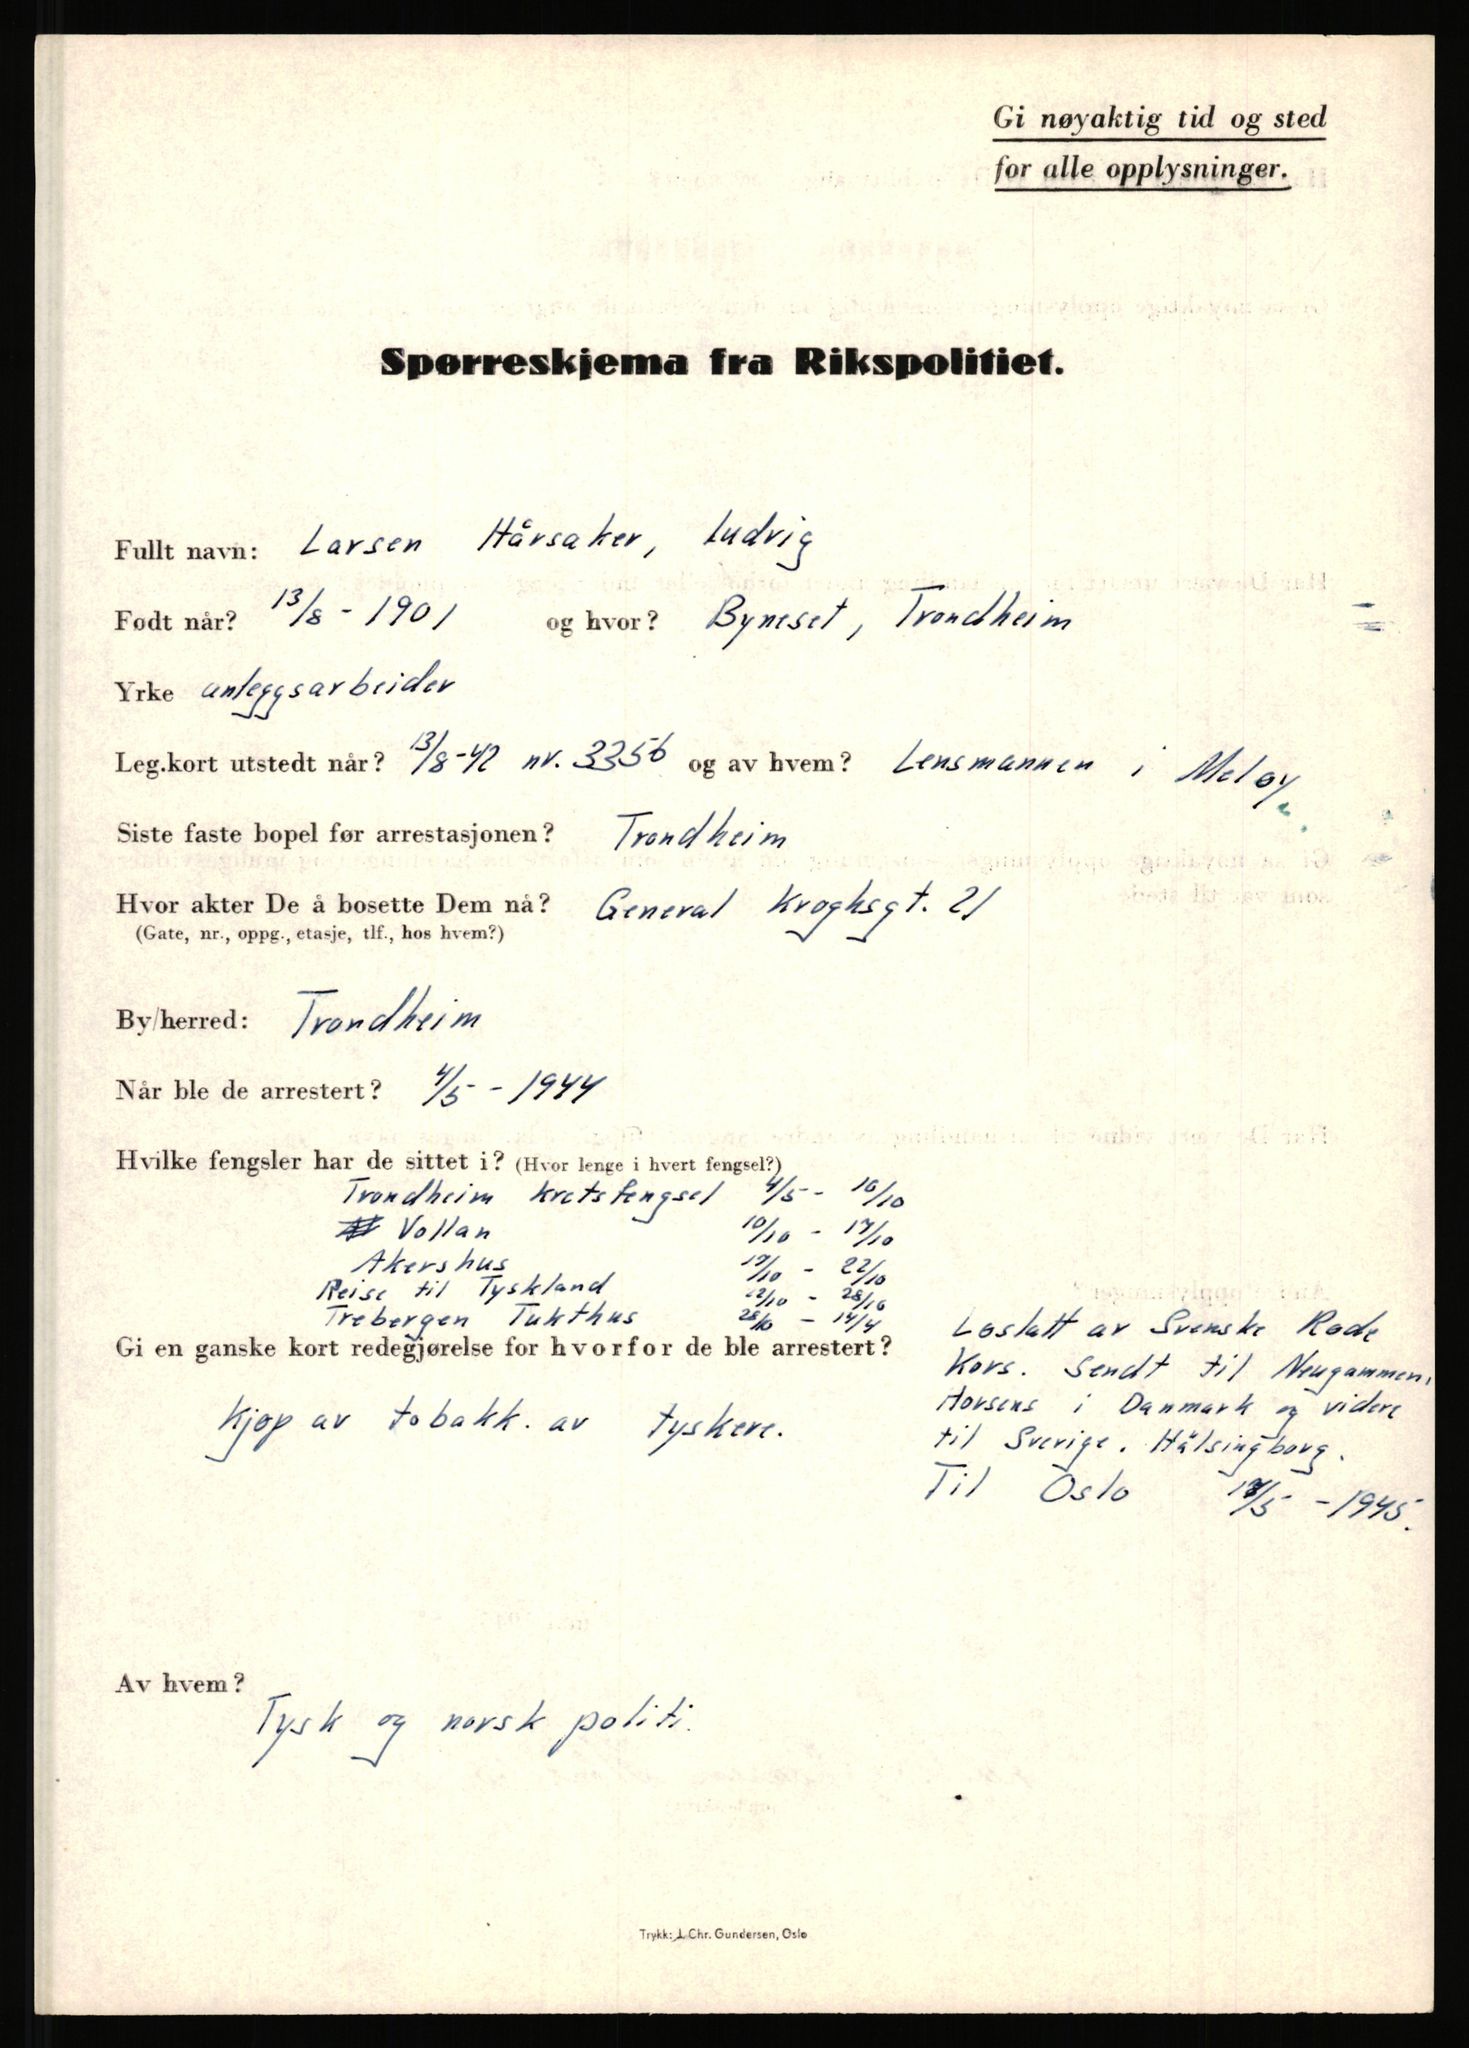 Gi nøyaktig tid og sted
for alle opplysninger.
Spørreskjema fra Rikspolitiet.
Fullt navn: Larsen Hårsaker, Ludvig
Født når? 13/8 - 1901 og hvor? Byneset, Trondheim
Yrke anleggsarbeider
Leg.kort utstedt når? 13/8-42 nr. 3356 og av hvem? Lensmannen i Meløy
Siste faste bopel før arrestasjonen? Trondheim
Hvor akter De å bosette Dem nå? General Kroghsgt. 21
(Gate, nr., oppg., etasje, tlf., hos hvem?)
By/herred: Trondheim
Når ble de arrestert? 4/5 - 1944
Hvilke fengsler har de sittet i? (Hvor lenge i hvert fengsel?)
Trondheim kretsfengsel 4/5 - 10/10
Vollan 10/10 - 17/10
Akershus 17/10 - 22/10
Reise til Tyskland 22/10 - 28/10
Trebergen Tukthus 28/10 - 14/4
Gi en ganske kort redegjørelse for hvorfor de ble arrestert?
Kjøp av tobakk. av tyskere.
Løslatt av Svenske Røde
Kors. Sendt til Neugammen,
Horsens i Danmark og videre
til Sverige. Hälsingborg.
Til Oslo /5 - 1945.
Av hvem?
Tysk og norsk politi.
Trykk: J. Chr. Gundersen, Oslo